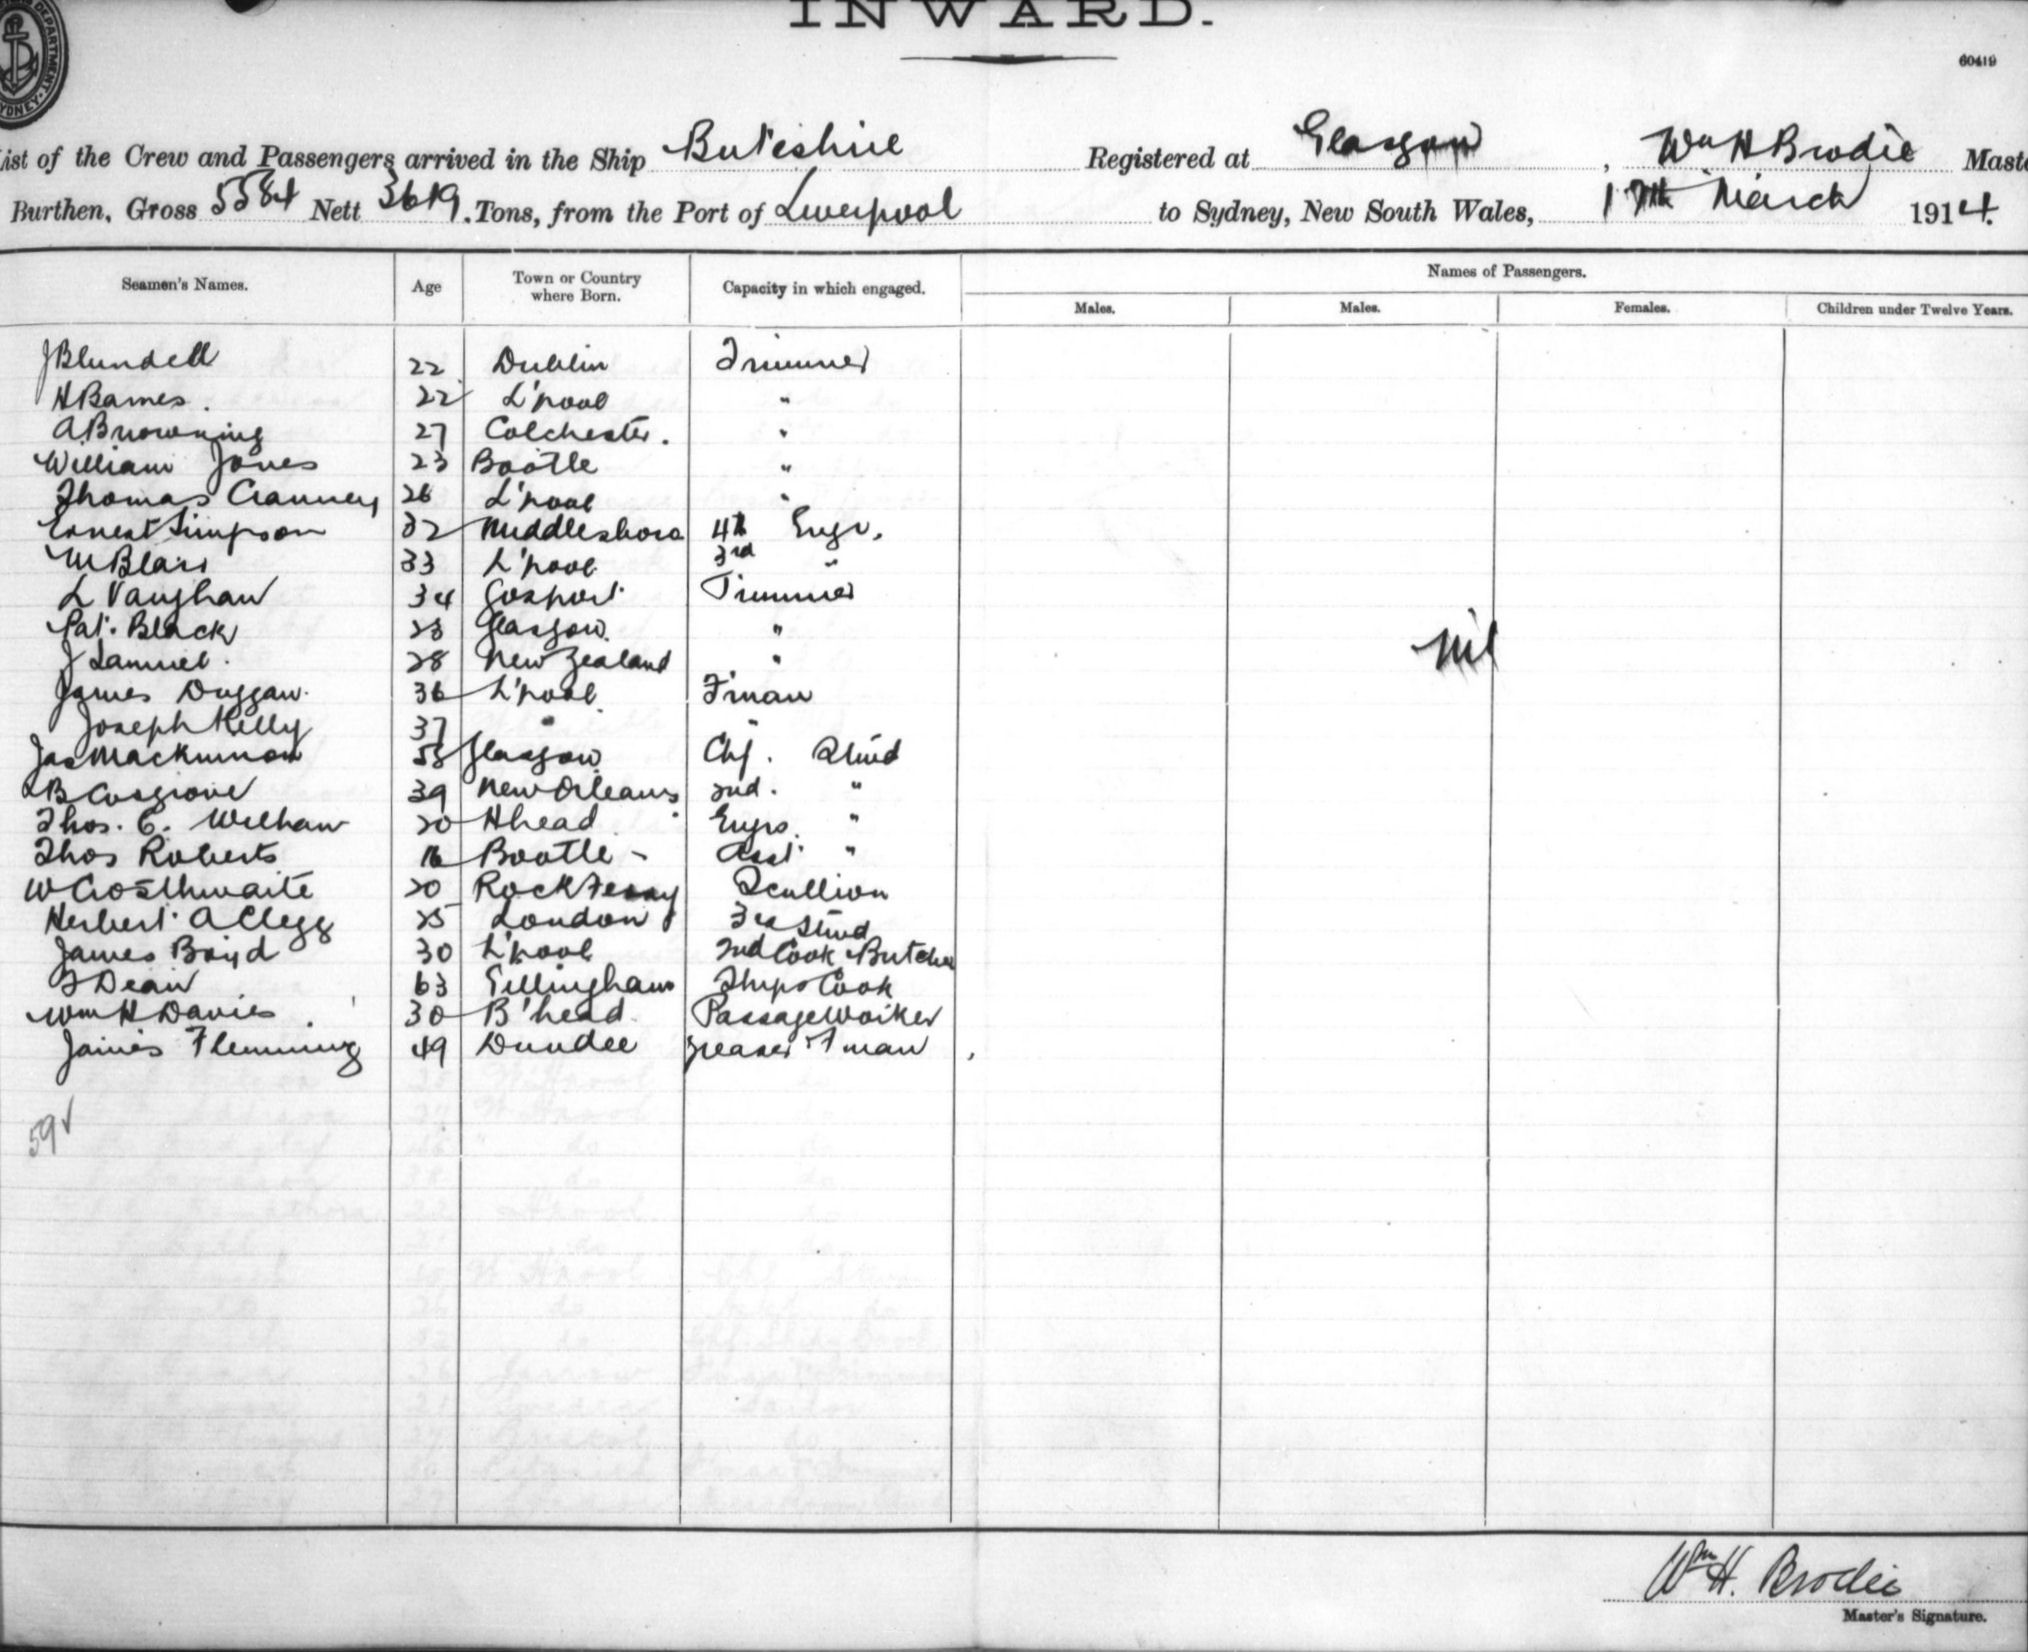 INWARD.
DEPARTMENT
SYDNEY
60419
List of the Crew and Passengers arrived in the Ship Buteshire Registered at Glasgow, Wm H Brodie Maste
Burthen, Gross 5584 Nett 3619. Tons, from the Port of Liverpool to Sydney, New South Wales, 17th March 1914.
Seamen's Names. Age Town or Country where Born. Capacity in which engaged. Names of Passengers.
Males. Males. Females. Children under Twelve Years.
J Blundell 22 Dublin Trimmer
H Barnes. 22 L'pool "
A. Browning 27 Colchester. "
William Jones 23 Bootle "
Thomas Cranney 26 L'pool "
Ernest Simpson 32 Middlesboro 4th Engr.
W Blair 33 L'pool 3rd "
L Vaughan 34 Gosport Trimmer
Pat. Black 23 Glasgow "
J Samuel. 28 New Zealand "
Nil
James Duggan. 36 L'pool F'man
Joseph Kelly 37 " "
Jas Mackinnon 55 Glasgow Chf. Stwd
B Cosgrove 39 New Orleans 2nd. "
Thos. C. 20 Engrs. "
Thos Roberts 16 Bootle - Asst "
W Crosthwaite 20 Rock Ferry Scullion
Herbert A Clegg 25 London 3rd Stwd
James Boyd 30 L'pool 2nd Cook & Butcher
Dean 63 Gillingham Ships Cook
Wm H Davies. 30 B'head Passage Worker
James Flemming 49 Dundee Greaser F'man
59
Wm H. Brodie
Master's Signature.